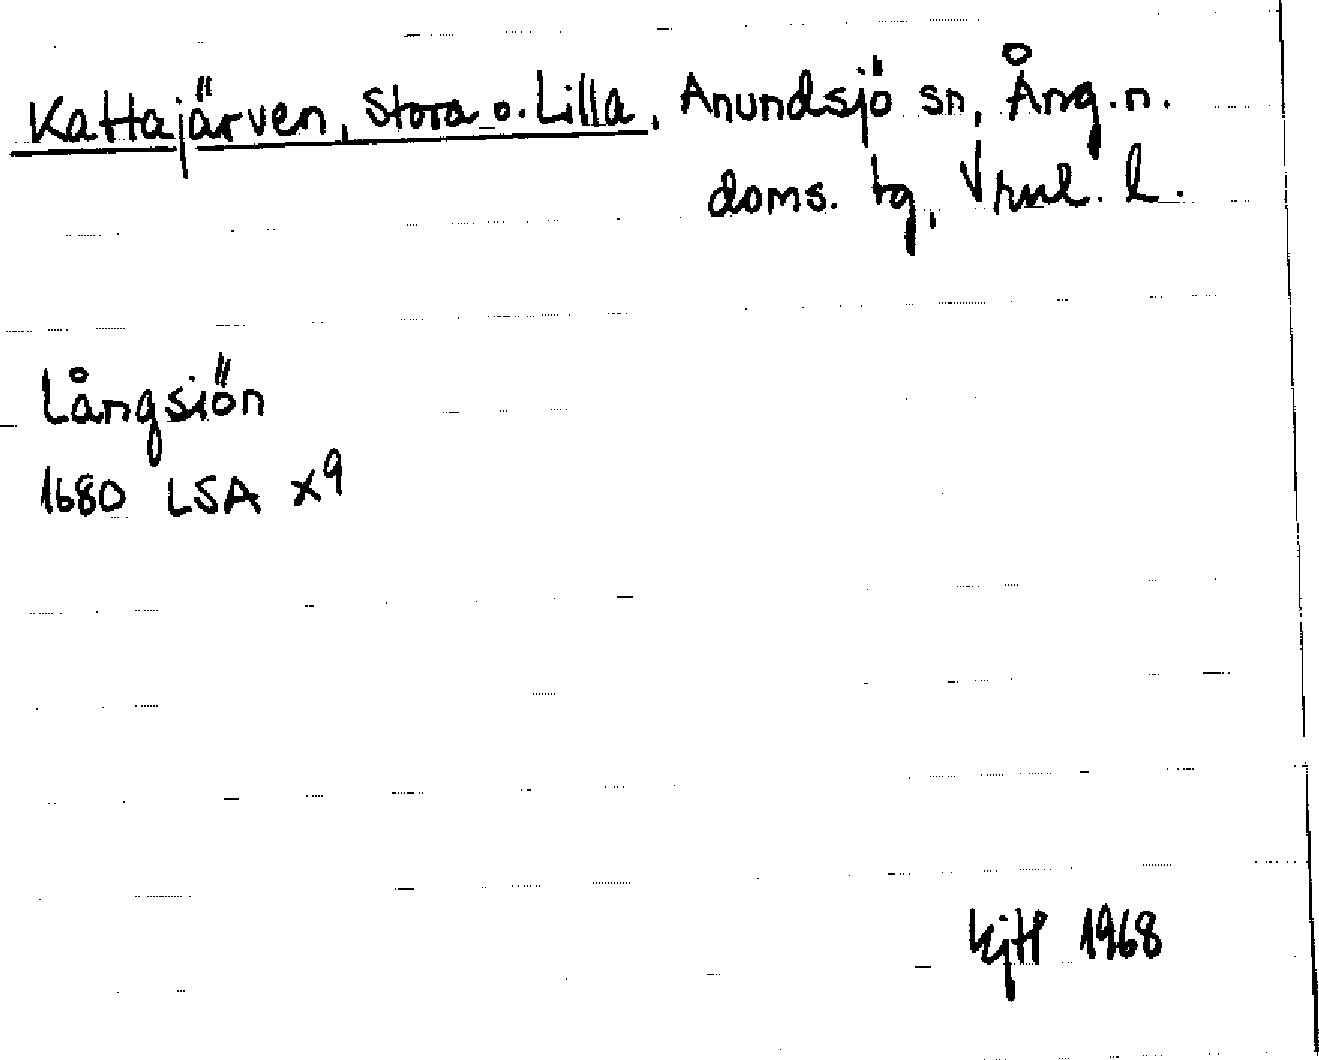 Kattajärven, Stora o. Lilla, Anundsjö sn, Ång. n.
doms. tg, Vrnl. l.
Långsiön
1680 LSA X9
KjH 1968